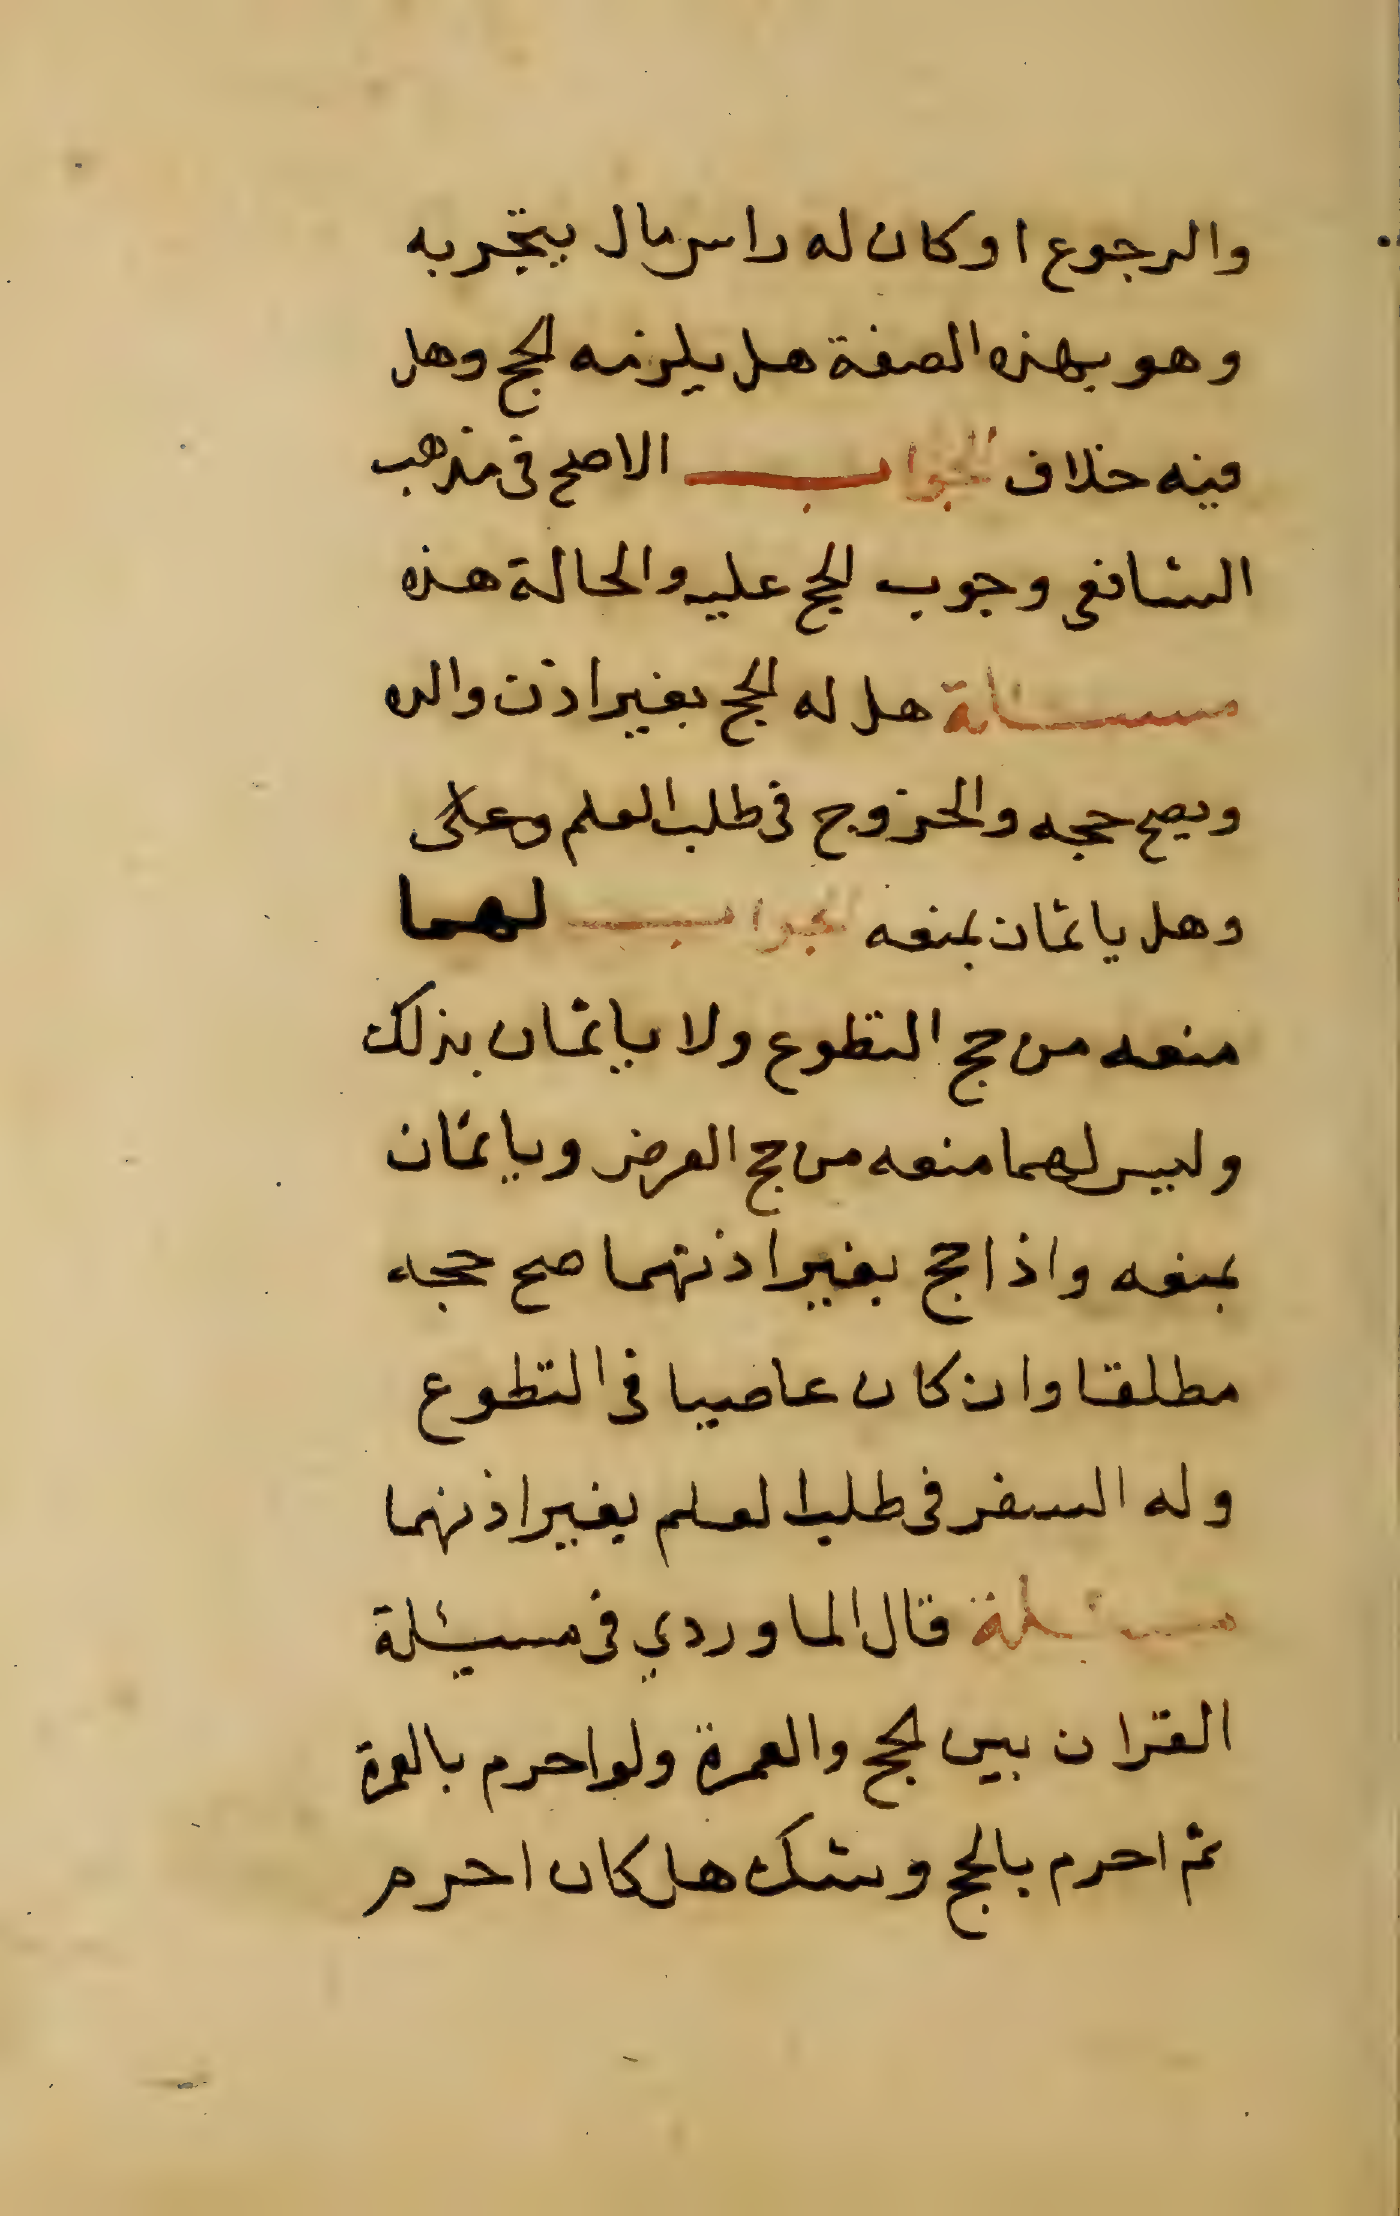 والرجوع او كان له راس مال يتجر به
وهو بهذه الصفة هل يلزمه الحج وهل
فيه خلاف الجواب الاصح فى مذهب
الشافعى وجوب الحج عليه والحالة هذه
مسالة هل له الحج بغير اذن والده
ويصح حجه والخروج فى طلب العلم
وهل ياثمان بمنعه الجواب لهما
منعه من حج التطوع ولا ياثمان بذلك
وليس لهما منعه من حج الفرض وياثمان
بمنعه واذا حج بغير اذنهما صح حجه
مطلقا وان كان عاصيا فى التطوع
وله السفر فى طلب العلم بغير اذنهما
مسئلة قال الماوردي فى مسئلة
القران بين الحج والعمرة ولو احرم بالعمرة
ثم احرم بالحج وشك هل كان احرم